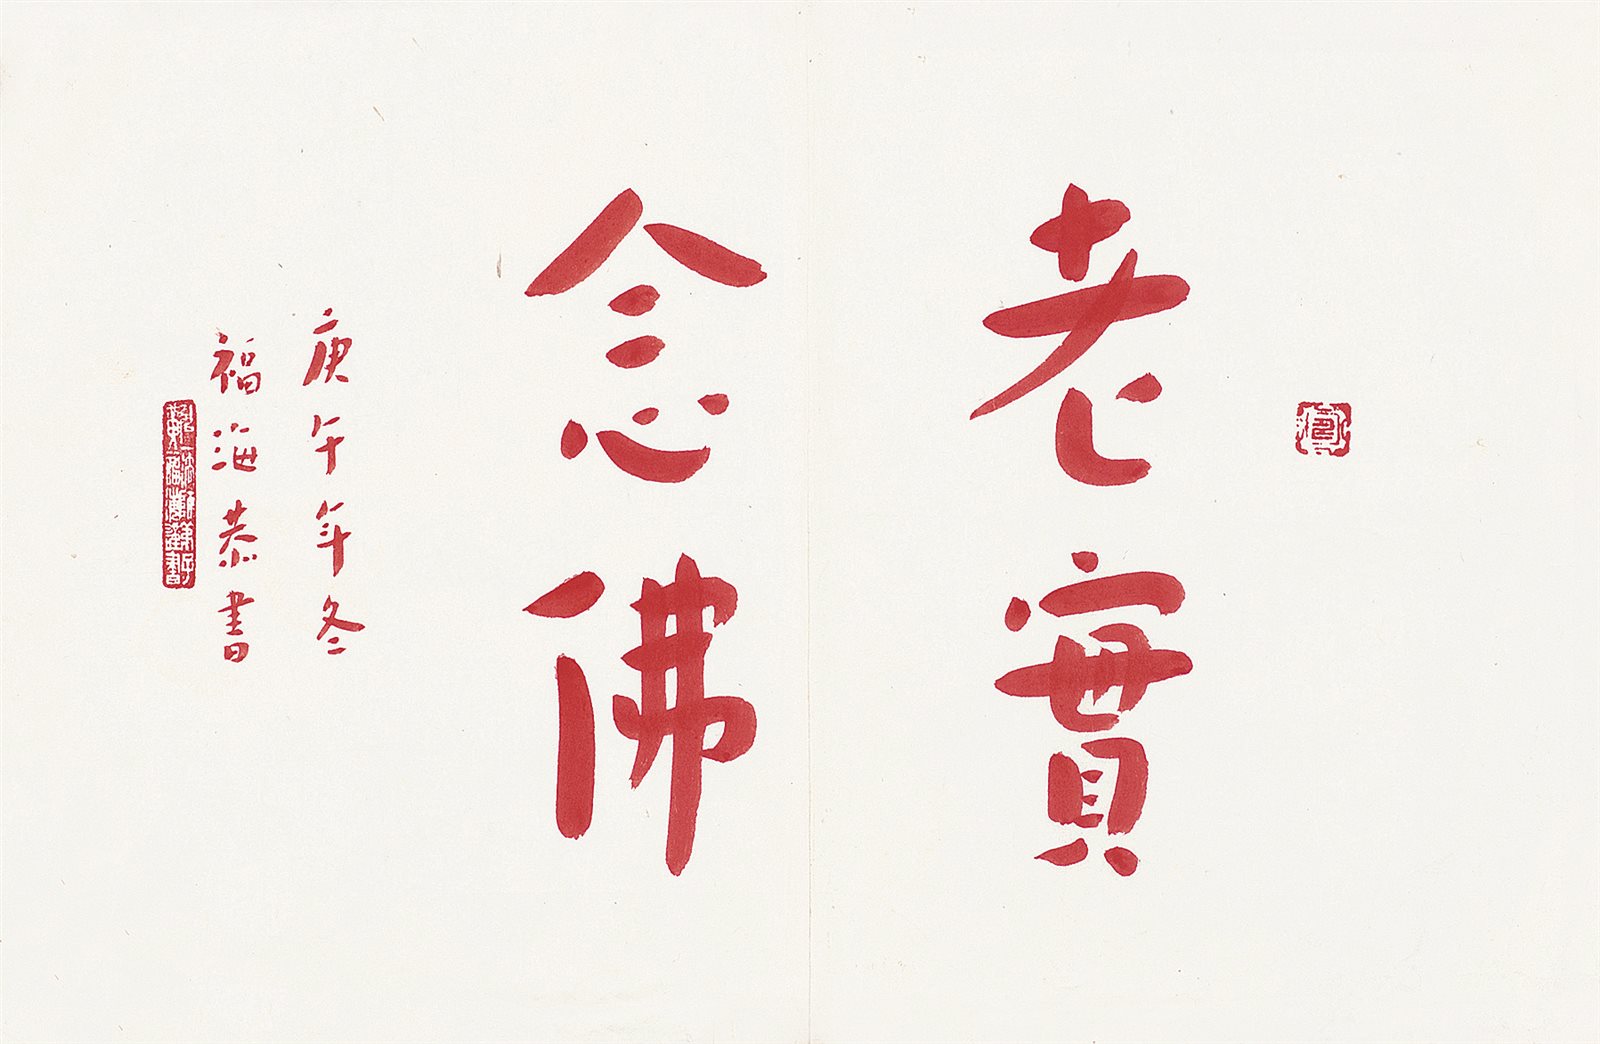 老實
念佛
庚午年冬
福海恭書